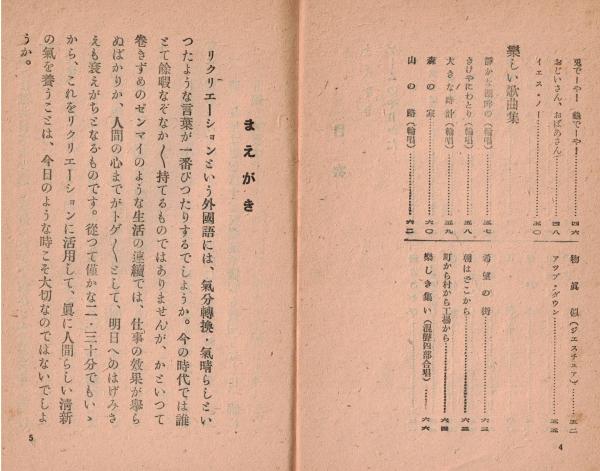 兎でーやー 龜でーやー……………四六
おじいさん、おばあさん……………四八
イエス・ノー……………五〇
物眞似(ジエスチュア)……………五二
アツプ・ダウン……………五五
樂しい歌曲集
静かな湖畔の(輪唱)……………五七
さけやにわとり(輪唱)……………五八
大きな時計(輪唱)……………五九
森の家……………六〇
山の路(輪唱)……………六二
希望の街……………六三
朝はそこから……………六三
町から村から工場から……………六四
樂しき集い(混聲四部合唱)……………六六
4
まえがき
リクリエーションという外國語には、氣分轉換・氣晴らしとい
つたような言葉が一番ぴつたりするでしようか。今の時代では誰
とて餘暇なぞなか〳〵持てるものではありませんが、かといつて
卷きずめのゼンマイのような生活の連續では、仕事の效果が擧ら
ぬばかりか、人間の心までがトゲ〳〵として、明日へのはげみさ
えも衰えがちとなるものです。從つて僅かな二・三十分でもいゝ
から、これをリクリエーションに活用して、眞に人間らしい清新
の氣を養うことは、今日のような時こそ大切なのではないでしよ
うか。
5